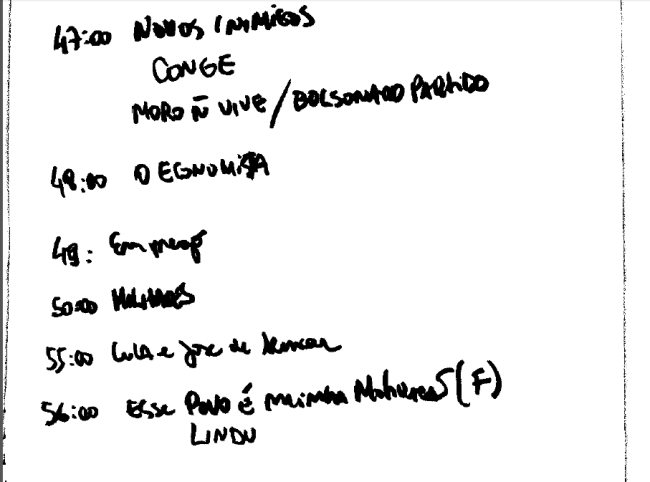 47:00 NOVOS INIMIGOS
CONGE
MORO Ñ VIVE / BOLSONARO PARTIDO
48:00 O ECONOMISTA
49: Emprego
50:00 MILITARES
55:00 Lula e José de Alencar
56:00 ESSE POVO É MINHA (F)
LINDU